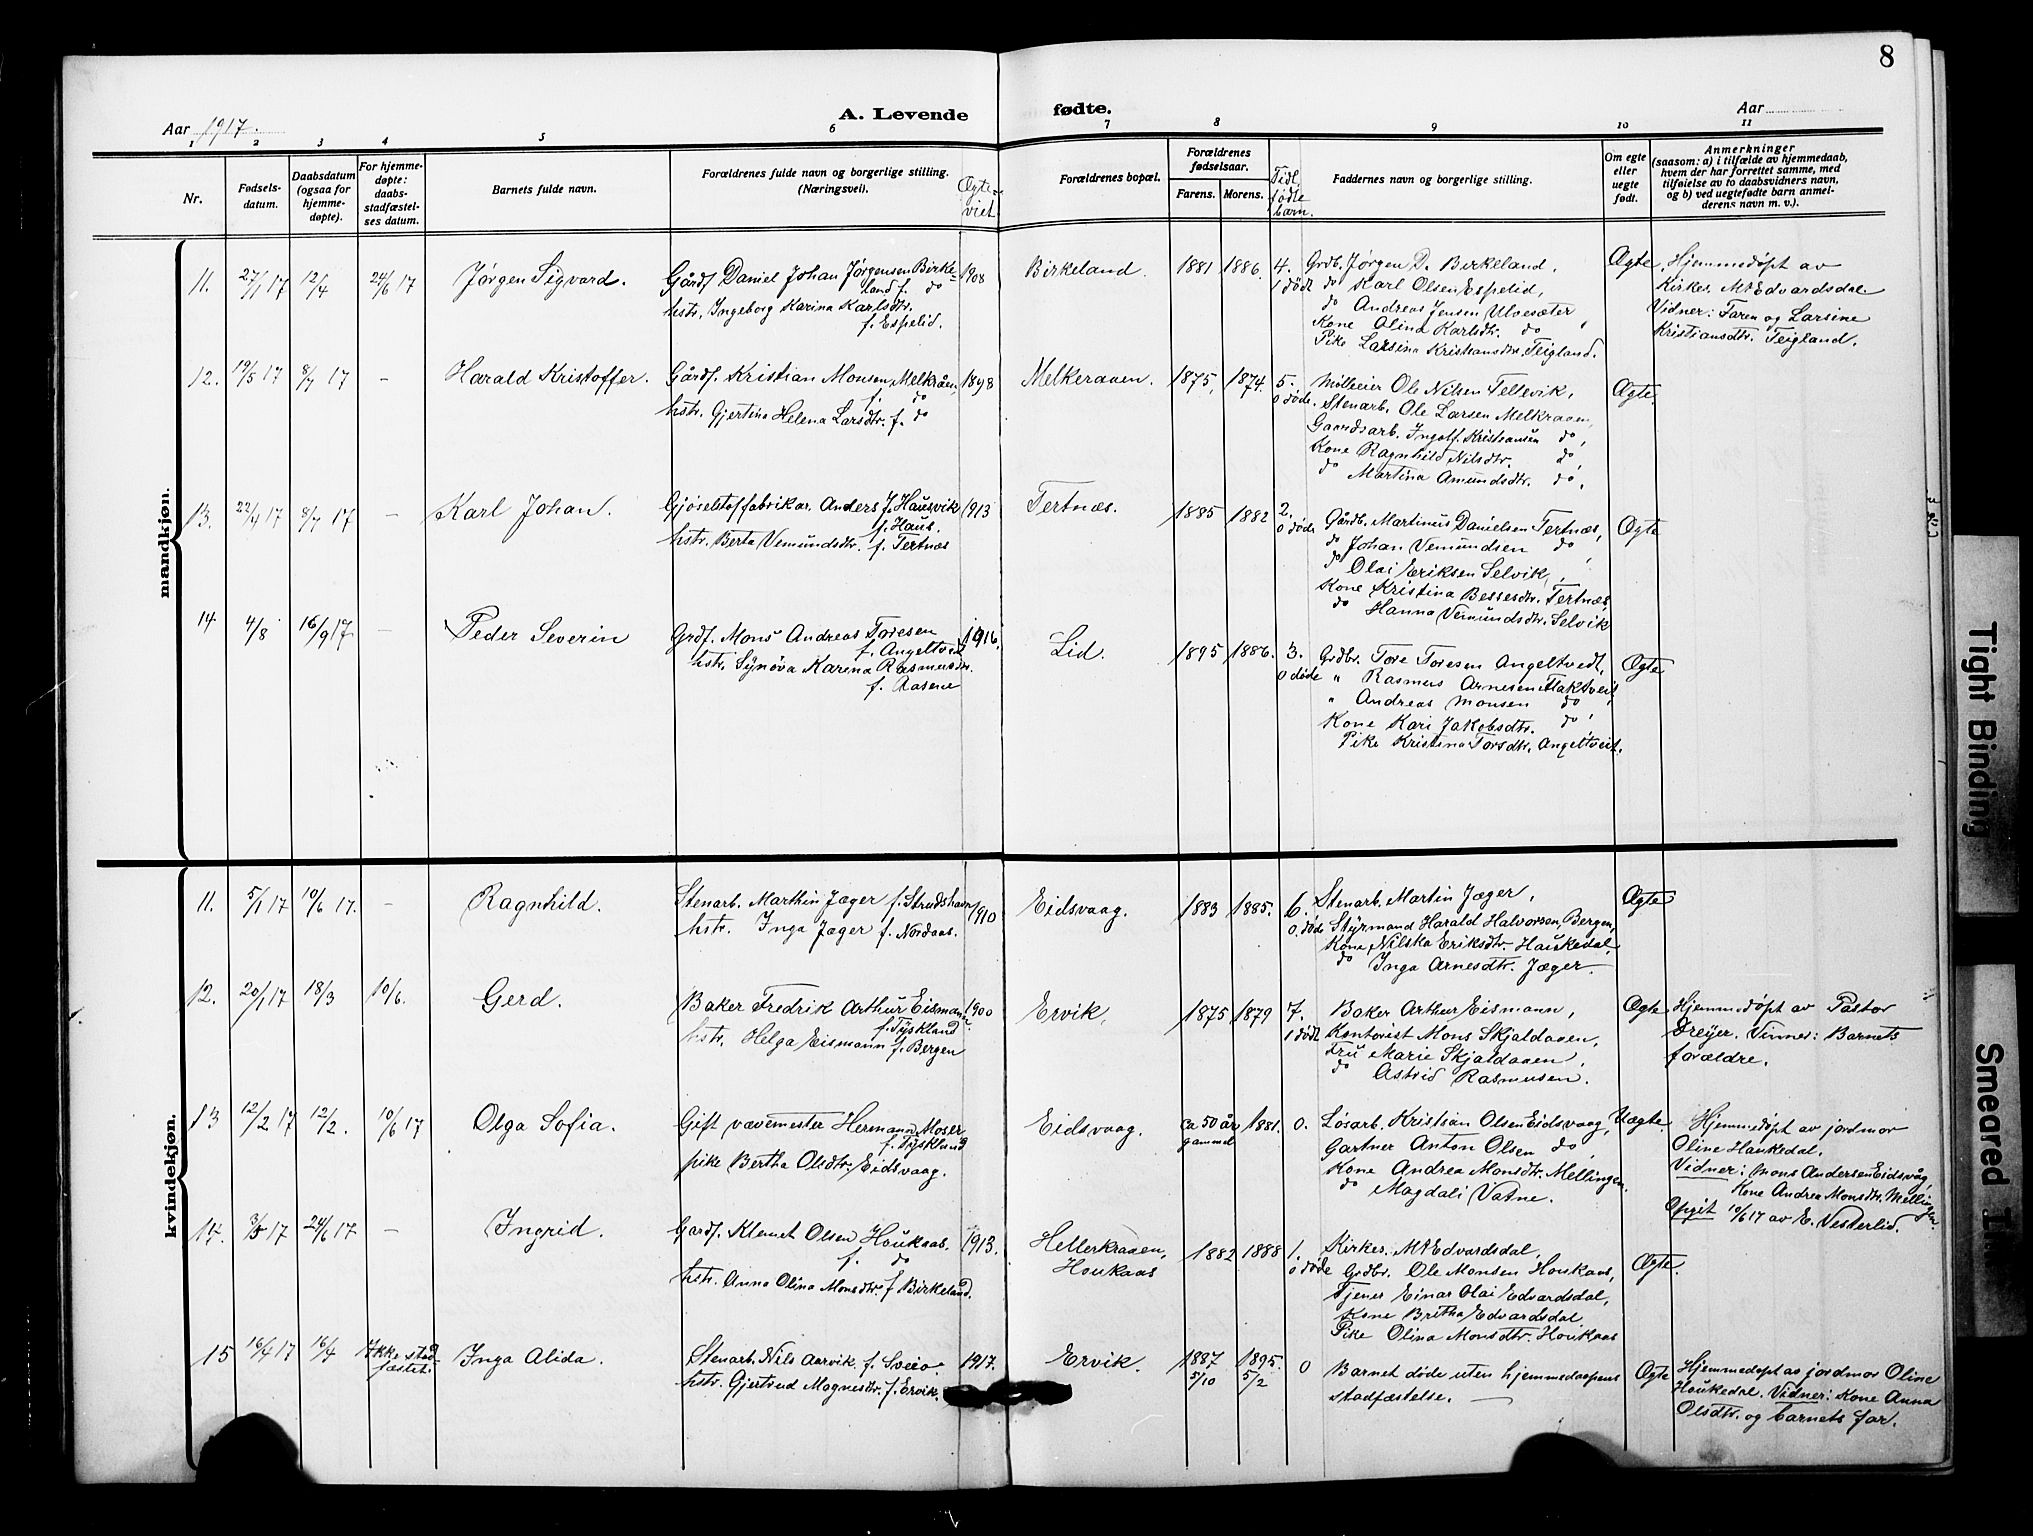 8
Aar 1917.
A. Levende fødte.
Aar
1 2 3 4 5 6 7 8 9 10 11
Nr.
Fødsels-
datum.
Daabsdatum
(ogsaa for
hjemme-
døpte).
For hjemme-
døpte:
daabs-
stadfæstel-
ses datum.
Barnets fulde navn.
Forældrenes fulde navn og borgerlige stilling.
(Næringsvei).
Ægte-
viet.
Forældrenes bopæl.
Forældrenes
fødselsaar.
Farens. Morens.
Tidl.
fødte
barn.
Faddernes navn og borgerlige stilling.
Om egte
eller
uegte
født.
Anmerkninger
(saasom: a) i tilfælde av hjemmedaab,
hvem der har forrettet samme, med
tilføielse av to daabsvidners navn,
og b) ved uegtefødte barn anmel-
derens navn m. v.).
mandkjøn.
11. 27/1 17 12/4 24/6 17 Jørgen Sigvard.
Gårdf. Daniel Johan Jørgensen Birke-
land f. do
hstr. Ingeborg Karina Karlsdtr.
f. Espelid.
1908
Birkeland.
1881 1886. 4.
1 død
Grdb. Jørgen D. Birkeland,
do Karl Olsen Espelid,
do Andreas Jensen Ulvesæter,
Kone Alina Karlsdtr. do
Pike Larsina Kristiansdtr. Teigland.
Ægte.
Hjemmedøpt av
Kirkes. M Edvardsdal.
Vidner: Faren og Larsine
Kristiansdtr. Teigland.
12. 19/5 17 8/7 17 - Harald Kristoffer.
Gårdf. Kristian Monsen Melkråen,
f. do
hstr. Gjertina Helena Larsdtr. f. do
1898
Melkeraaen.
1875, 1874. 5.
0 døde.
Mølleeier Ole Nilsen Tellevik,
Stenarb. Ole Larsen Melkraaen,
Gaardsarb. Ingolf Kristiansen do,
Kone Ragnhild Nilsdtr. do,
do Martina Amundsdtr. do,
Ægte.
13. 22/4 17 8/7 17 - Karl Johan.
Gjørelstoffabrikar. Anders J. Hausvik
f. Haus.
hstr. Berta Vemundsdtr. f. Tertnæs
1913
Tertnæs.
1885 1882 2.
0 døde
Gårdb. Martinus Danielsen Tertnæs,
do Johan Vemundsen do,
do Olai Eriksen Selvik,
Kone Kristina Bessesdtr. Tertnæs,
do Hanna Vemundsdtr. Selvik
Ægte
14 4/8 16/9 17 - Peder Severin
Grdf. Mons Andreas Toresen
f. Angeltveit
hstr. Synøva Karina Rasmusdtr.
f. Aasene
1916.
Lid.
1895 1886. 3.
0 døde
Grdbr. Tore Toresen Angeltvedt,
" Rasmus Arnesen Flaktveit,
" Andreas Monsen do,
Kone Kari Jakobsdtr. do,
Pike Kristina Torsdtr. Angeltveit.
Ægte
kvindekjøn.
11. 5/1 17 10/6 17. - Ragnhild.
Stenarb. Marthin Jæger f. Strudshavn
hstr. Inga Jæger f. Nordaas.
1910
Eidsvaag.
1883 1885. 6.
0. døde
Stenarb. Martin Jæger,
Styrmand Harald Halvorsen, Bergen,
Kone Nilska Eriksdtr. Haukedal,
do Inga Arnesdtr. Jæger.
Ægte
12. 20/1 17 18/3 10/6. Gerd.
Baker Fredrik Arthur Eismann
f. Tyskland
hstr. Helga Eismann f. Bergen
1900
Ervik.
1875 1879 7.
1 død
Baker Arthur Eismann,
Kontorist Mons Skjaldaaen,
Fru Marie Skjaldaaen,
do Astrid Rasmusen.
Ægte
Hjemmedøpt av Pastor
Dreyer. Vinner: Barnets
forældre.
13 12/2 17 12/2. 10/6 17 Olga Sofia.
Gift vævemester Hermann Moser
f. Tyskland
pike Bertha Olsdtr. Eidsvaag.
Eidsvaag.
ca 50 år
gammel
1881. 0.
Løsarb. Kristian Olsen Eidsvaag,
Gartner Anton Olsen do,
Kone Andrea Monsdtr. Mellingen,
do Magdali Vatne.
Uægte.
Hjemmedøpt av jordmor
Oline Haukedal.
Vidner: Mons Andersen Eidsvåg,
Kone Andrea Monsdtr. Mellingen.
Opgit 10/6 17 av E. Vesterlid.
14. 3/5 17 24/6 17 - Ingrid.
Gardf. Klemet Olsen Houkaas.
f. do
hstr. Anna Olina Monsdtr. f Birkeland.
1913.
Hellerkraaen,
Houkaas
1882 1888 1.
0 døde
Kirkes. M Edvardsdal,
Grdbr. Ole Monsen Houkaas,
Tjener Einar Olai Edvardsdal,
Kone Britha Edvardsdal,
Pike Olina Monsdtr. Houkaas
Ægte.
15 16/4 17 16/4 Ikke stad-
fæstet. Inga Alida.
Stenarb. Nils Aarvik f. Sveio
hstr. Gjertrud Magnesdtr. f. Ervik.
1917.
Ervik.
1887
5/10
1895.
5/2
0
Barnet døde uten hjemmedaapens
stadfæstelse.
Ægte
Hjemmedøpt av jordmor Oline
Houkedal. Vidner: Kone Anna
Olsdtr. og barnets far.
Tight Binding
Smeared